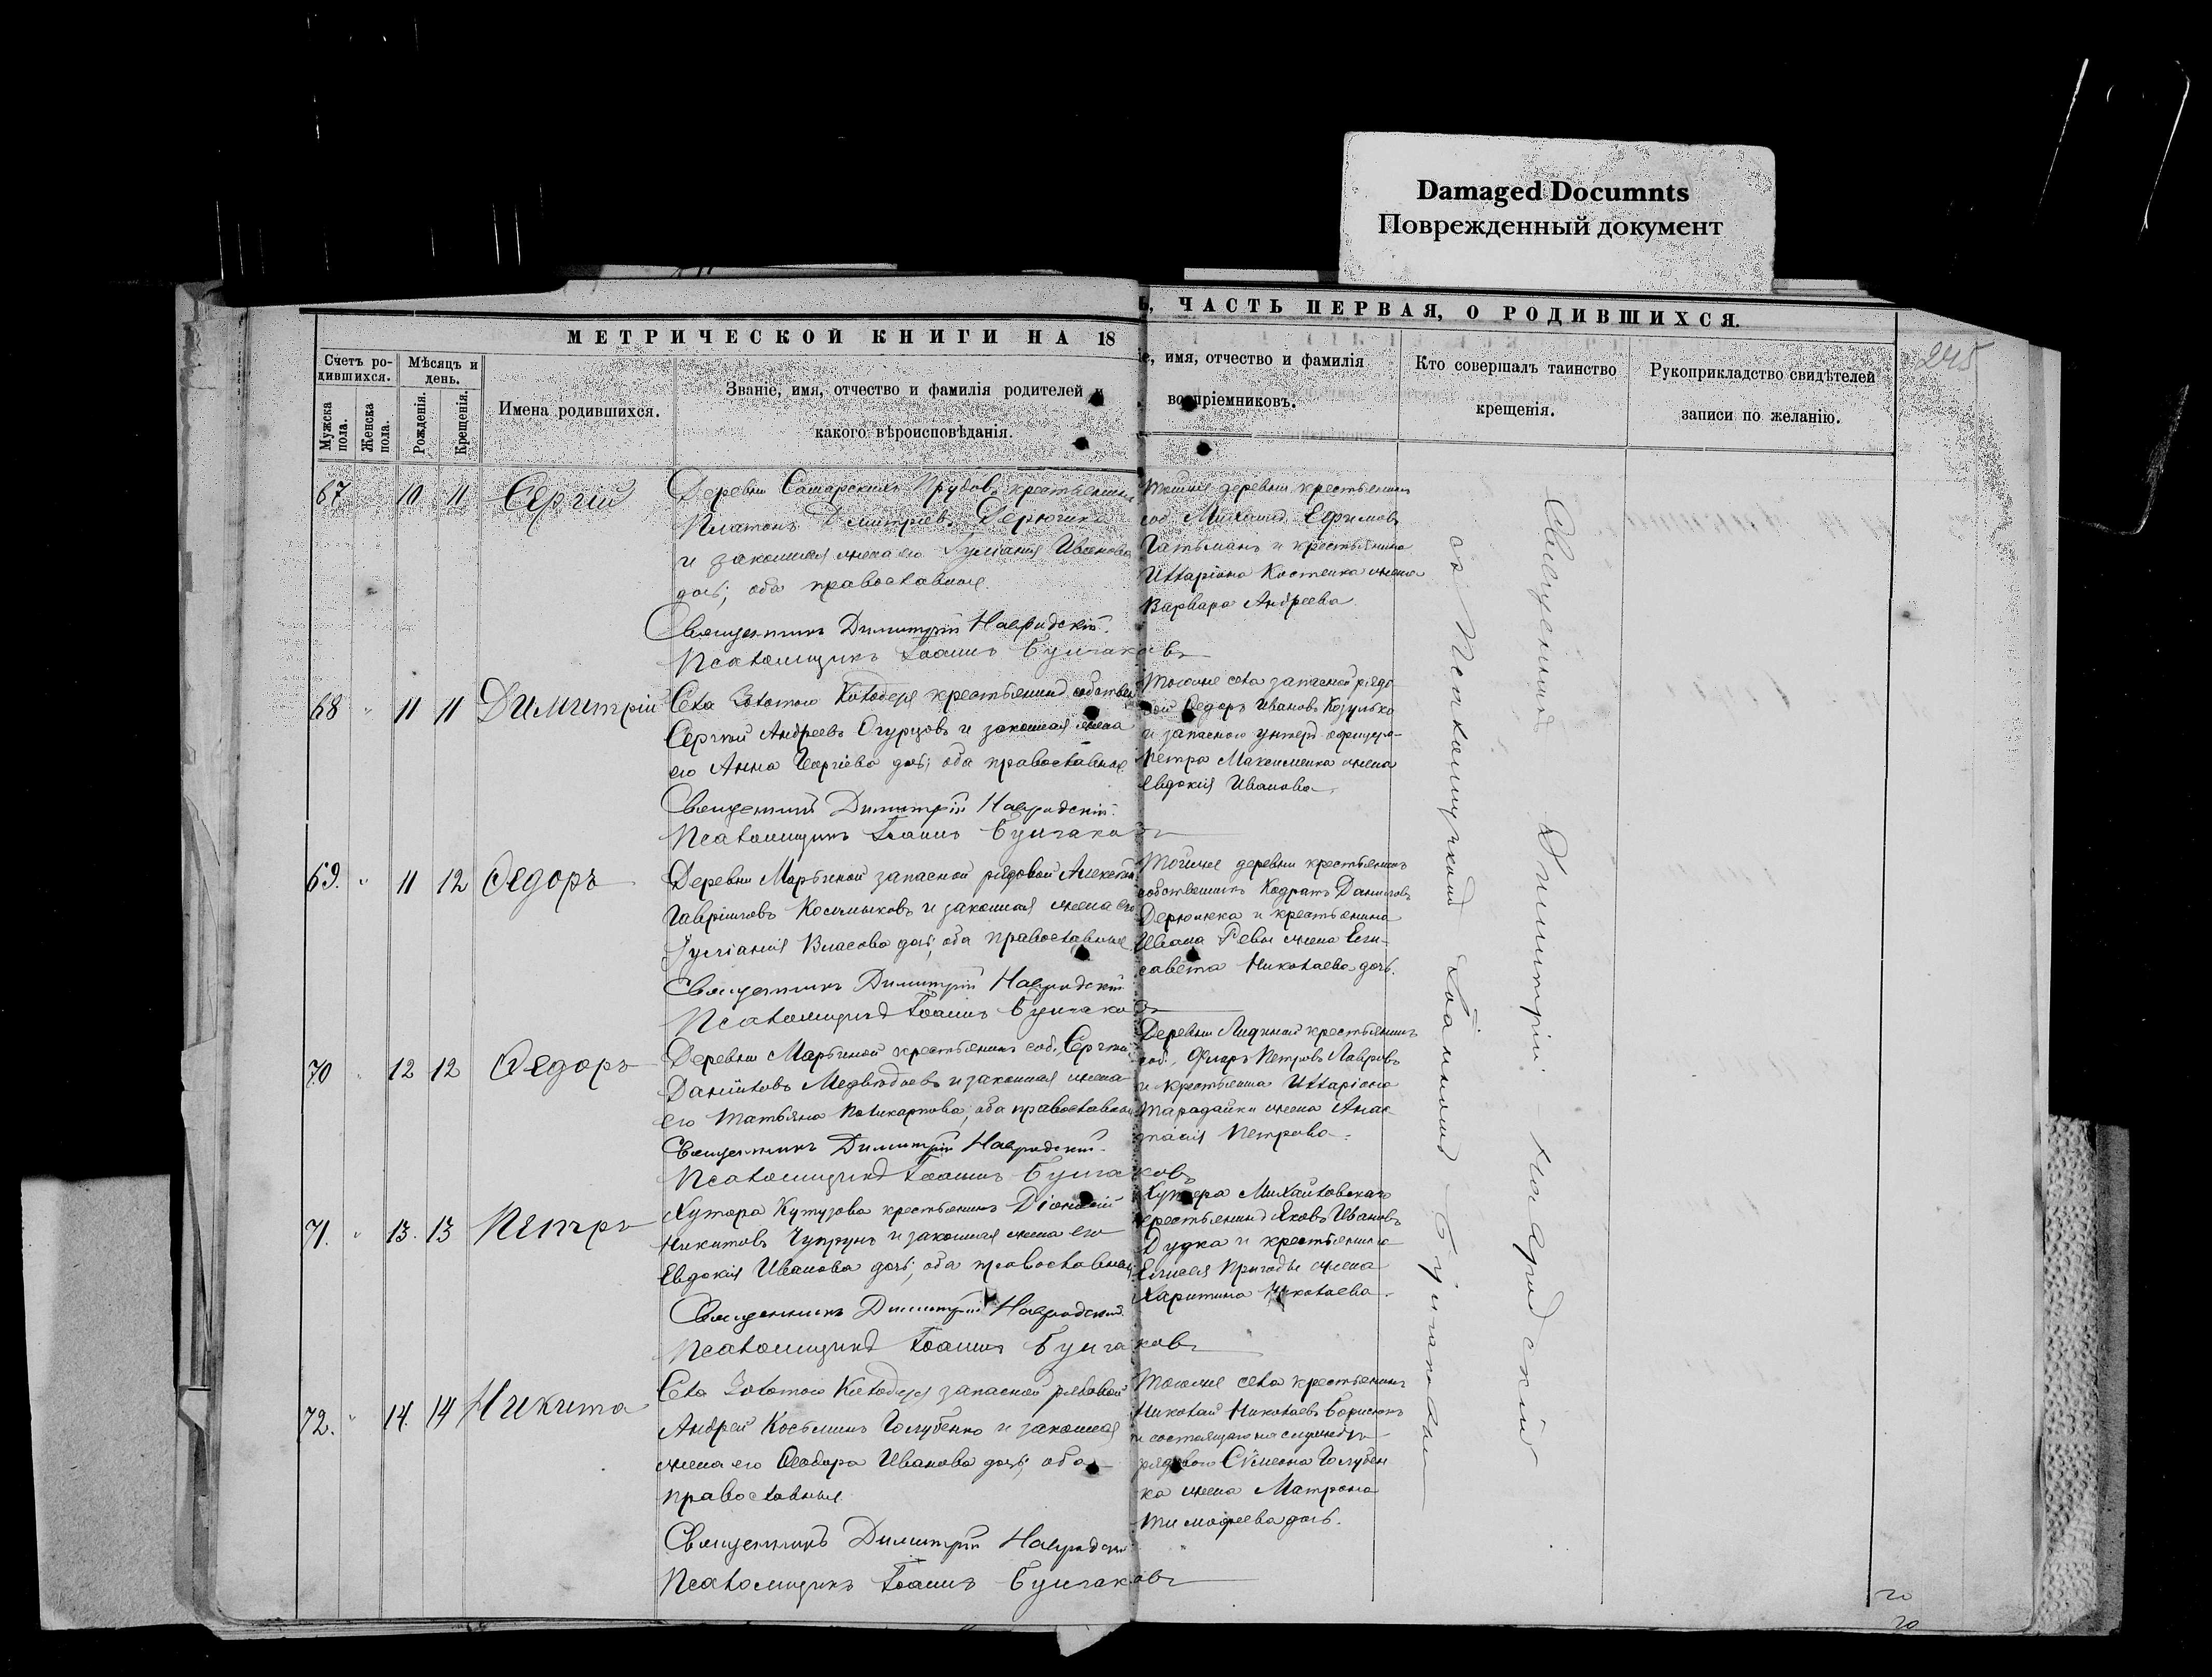 Damaged Documnts
Поврежденный документ
МЕТРИЧЕСКОЙ КНИГИ НА 18
Ь, ЧАСТЬ ПЕРВАЯ, О РОДИВШИХСЯ.
245
Счетъ ро-
дившихся.
Мужска
пола.
Женска
пола.
Мѣсяцъ и
день.
Рожденія.
Крещенія.
Имена родившихся.
Званіе, имя, отчество и фамилія родителей и
какого вѣроисповѣданія.
е, имя, отчество и фамилія
воспріемниковъ.
Кто совершалъ таинство
крещенія.
Рукоприкладство свидѣтелей
записи по желанію.
67 10 11 Сергій
Деревни Самарскихъ Прудовъ крестьянинъ
Платонъ Дмитріевъ
и законная жена его Іуліанія Иванова
дочь; оба православные.
Священникъ Димитрій Навродскій.
Псаломщикъ Іоаннъ Булгаковъ
Тойже деревни крестьянинъ
соб. Михаилъ Ефимовъ
Гатьманъ и крестьянина
Илларіона Костенка жена
Варвара Андреева
68 " 11 11 Димитрій
Села Золотого Колодезя крестьянинъ собствен
Сергѣй Андреевъ Огурцовъ и законная жена
его Анна Георгіева дочь; оба православные.
Священникъ Димитрій Навродскій.
Псаломщикъ Іоаннъ Булгаковъ
Тогоже села запасной рядо
вой Ѳедоръ Ивановъ Козулько
и запасного унтеръ офицера
Петра Максименка жена
Евдокія Иванова.
69. " 11 12 Ѳедоръ
Деревни Марьиной запасной рядовой Алексѣй
Гавріиловъ и законная жена его
Іуліанія Власова дочь, оба православные
Священникъ Димитрій Навродскій
Псаломщикъ Іоаннъ Булгаковъ
Тойже деревни крестьянинъ
собственникъ Кодратъ Даниловъ
и крестьянина
Ивана Ревы жена Ели-
савета Николаева дочь.
70 " 12 12 Ѳедоръ
Деревни Марьиной крестьянинъ соб. Сергѣй
Даніиловъ Медвѣдевъ и законная жена
его Татьяна Поликарпова, оба православные
Священникъ Димитрій Навродскій.
Псаломщикъ Іоаннъ Булгаковъ
Деревни крестьянинъ
соб. Петровъ Лавровъ
и крестьянина Илларіона
Тарадайки жена Анас
тасія Петрова.
71. " 13. 13 Петръ
Хутора Кутузова крестьянинъ Діонисій
Никитовъ Чупрунъ и законная жена его
Евдокія Иванова дочь, оба православные
Священникъ Димитрій Навродскій.
Псаломщикъ Іоаннъ Булгаковъ
Хутора Михайловскаго
крестьянинъ Яковъ Ивановъ
Дудка и крестьянина
Елисея Пригоды жена
Харитина Николаева.
72. " 14. 14 Никита
Села Золотого Колодезя запасной рядовой
Андрей Косьминъ Голубенко и законная
жена его Ѳеодора Иванова дочь; оба
православные.
Священникъ Димитрій Навродскій
Псаломщикъ Іоаннъ Булгаковъ
Тогоже села крестьянинъ
Николай Николаевъ Борисюкъ
и состоящаго на службѣ
рядового Сѵмеона Голубен
ка жена Матрона
Тимоѳеева дочь.
Священникъ Димитрій Навродскій
съ Псаломщикомъ Іоанномъ Булгаковымъ
20
20